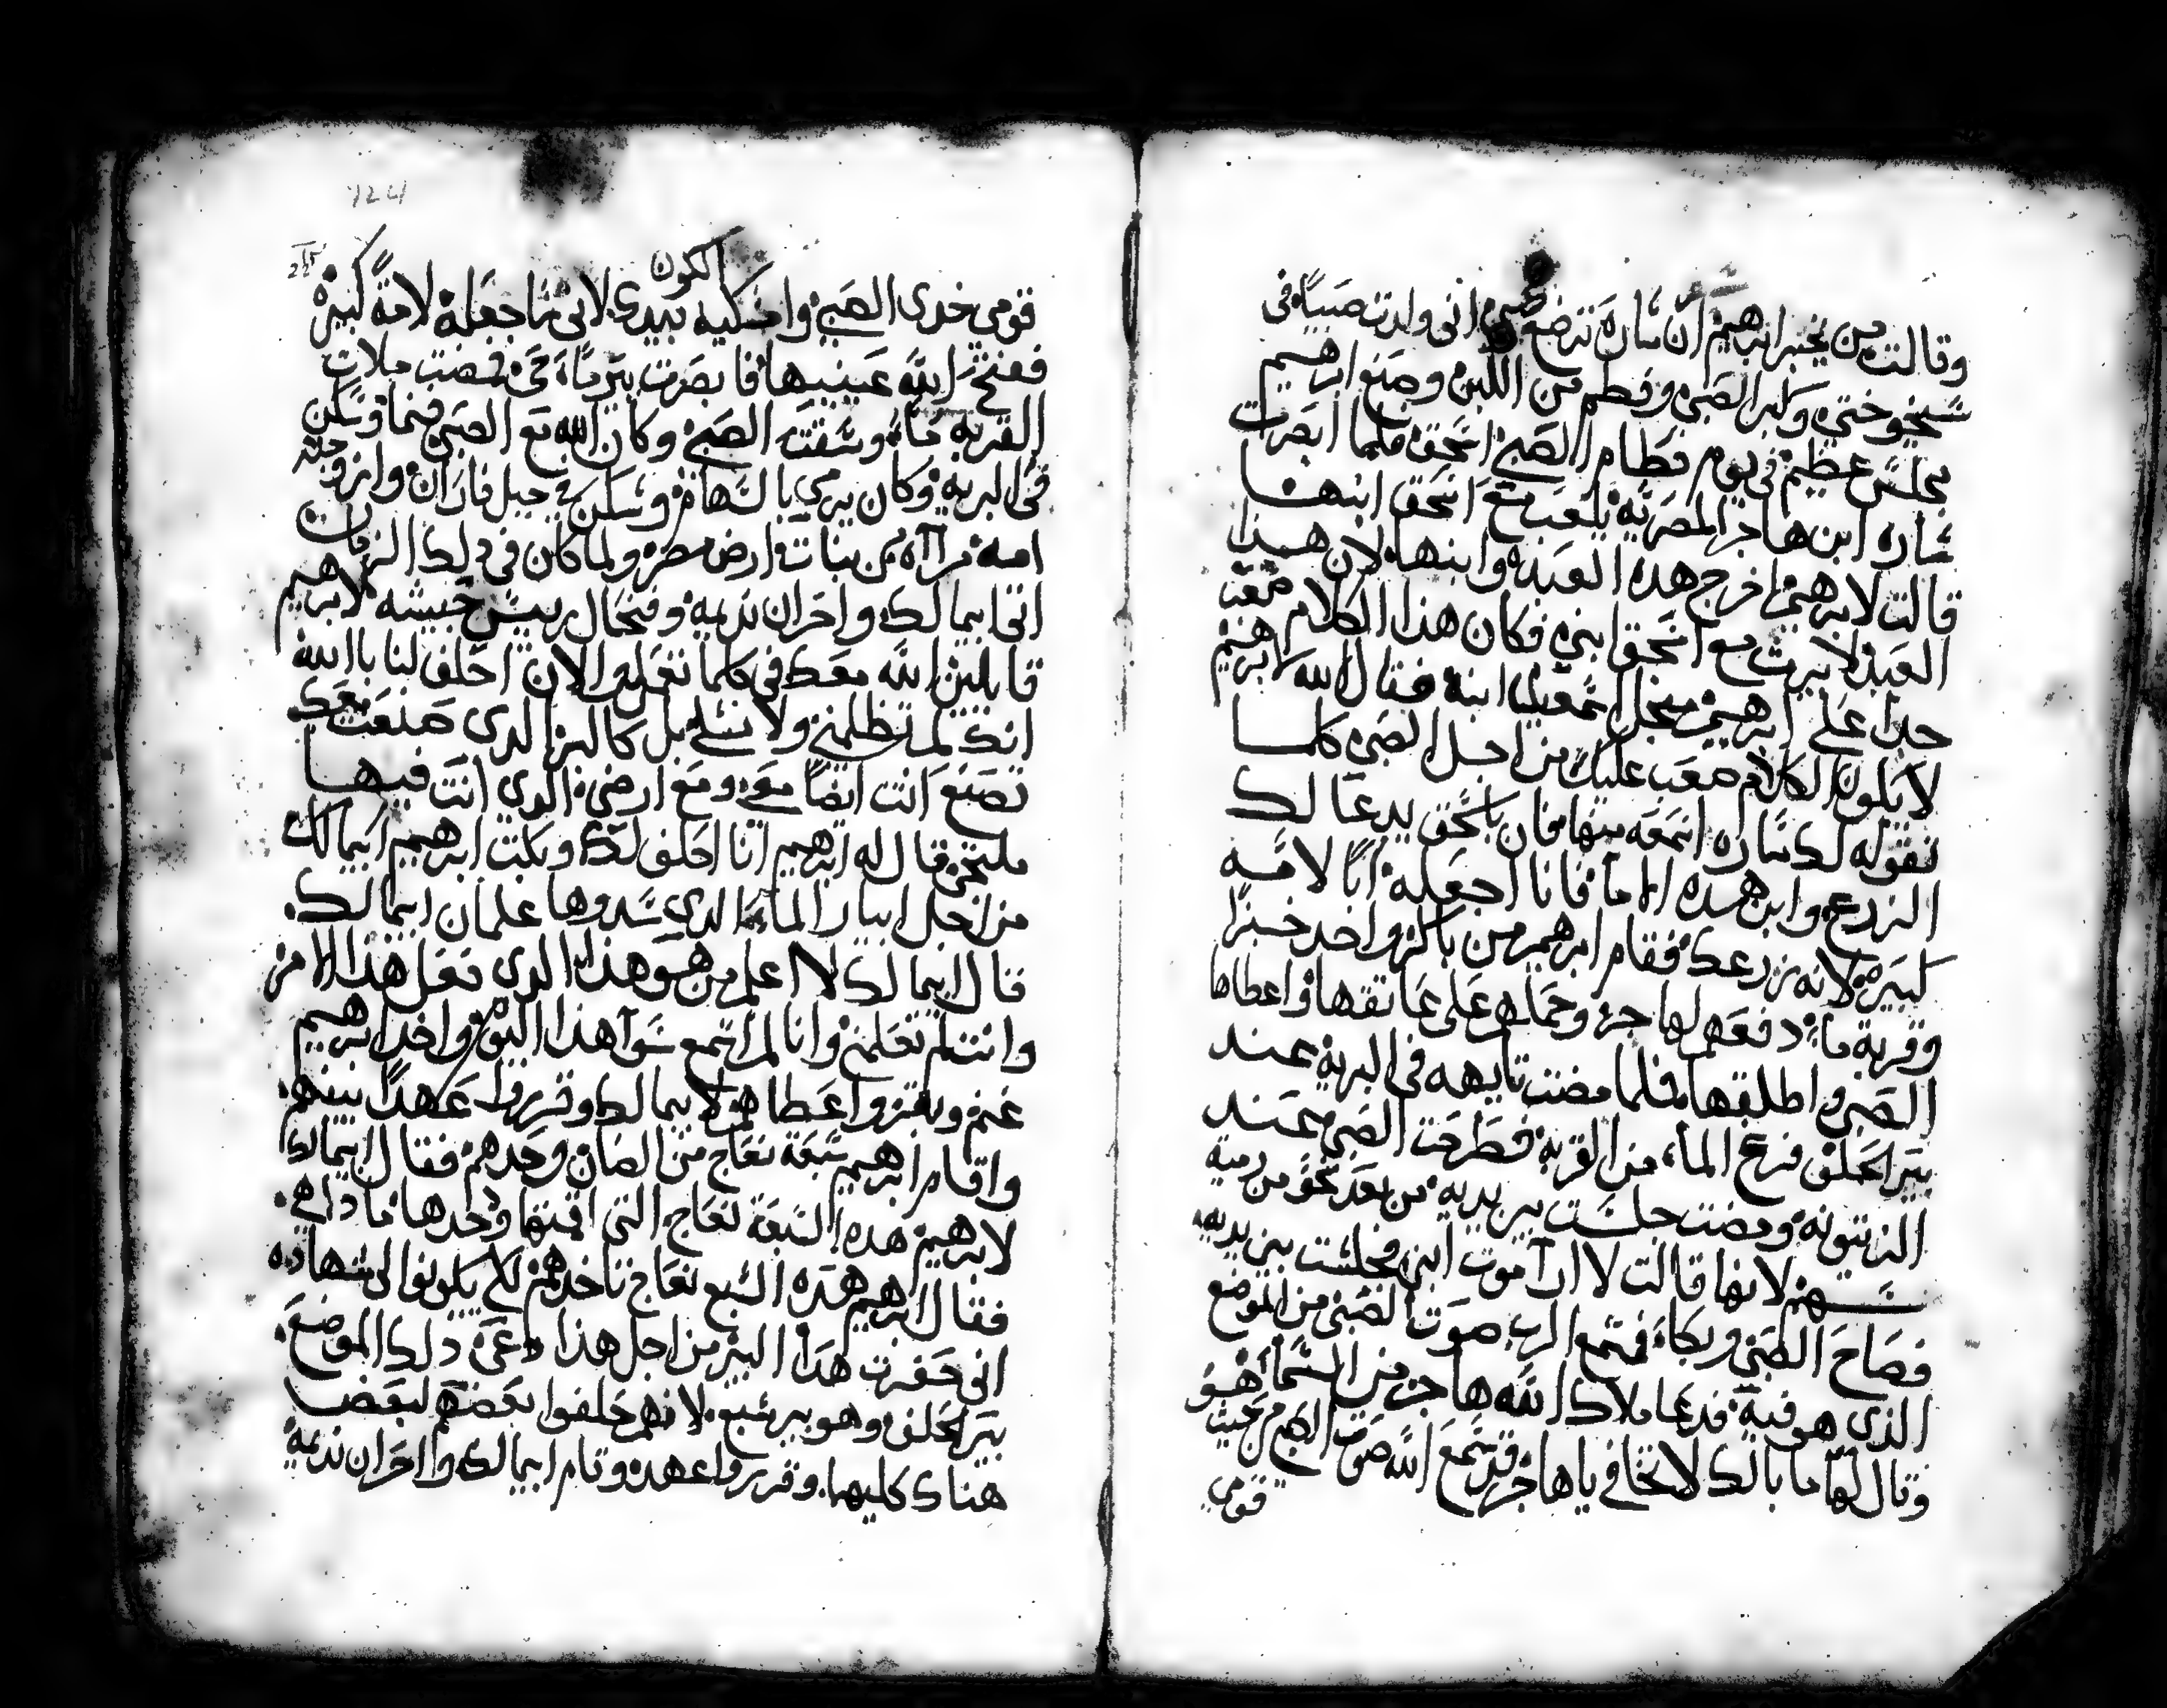 وقالت من يخبر ابرهيم ان ساره ترضع صبي انى ولدت صبيًا فى
شيخوختي وكبر الصبى وفطم من اللبن وصنع ابرهيم
مجلس عظيم فى يوم فطام الصبي اسحق فلما ابصرت
ساره ابن هاجر المصريه يلعب مع اسحق ابنها
قالت لابرهيم اخرج هذه العبده وابنها لان هذا
العبد لا يرث مع اسحق ابني فكان هذا الكلام صعب
جدا على ابرهيم من اجل اسمعيل ابنه فقال الله لابرهيم
لا يكون الكلام صعب عليك من اجل الصبى كلما
تقوله لك ساره اسمعه منها فان باسحق يدعا لك
الزرع وابن هذه الامه فانا اجعله ابًا لامه
كبيره لانه زرعك فقام ابرهيم من باكر واخد خبزًا
وقربة ماء دفعهم لهاجر وحملهم على عاتقها واعطاها
الصبي واطلقها فلما مضت تايهه فى البريه عند
بير الحلف فرغ الماء من القربه فطرحت الصبي عند
الزيتونه ومضت جلست بين يديه من بعد نحو من رمية
سهم لانها قالت لا ارا موت ابني فجلست بين يديه
فصاح الصبي وبكاء فسمع الرب صوت الصبي من الموضع
الذى هو فيه فدعا ملاك الله هاجر من السماء
وقال لها ما بالك لا تخافي يا هاجر قد سمع الله صوت الصبي من حيث هو
قومي
124
قومي خدى الصبي وامسكيه بيدى لانى ساجعله لامةً كبيره
الكون
ففتح الله عينيها فابصرت بير ماء حى فمضت ملات
القربه ماء وسقت الصبي وكان الله مع الصبي فنما وسكن
فى البريه وكان يرمي بالنشاب وسكن في جبل فاران وازوجته
امه مراه من بنات ارض مصر ولما كان فى دلك الزمان
اتى ابيمالك واخزان نديمه وفيخال رييس جيشه لابرهيم
قايلين الله معك في كلما تفعله والان احلف لنا بالله
انك لم تظلمني ولا نسلي بل كالبر الدى صنعت معك
تصنع انت ايضًا معي ومع ارضي الدي انت فيها
قال له ابرهيم انا احلف لك وبكت ابرهيم ابيمالك
من اجل ابيار الماء الدي سدوها غلمان ابيمالك
قال ابيمالك لا اعلم من هو هذا الدى فعل هذا الامر
وانت لم تعلمني وانا لم اسمع سوا هذا اليوم واخد ابرهيم
غنم وبقر واعطاهم لابيمالك وقرروا عهدًا بينهم
واقام ابرهيم سبعة نعاج من الضان وحدهم فقال ابيمالك
لابرهيم هده السبعة نعاج التى اقمتها وحدها ما دا هي
فقال ابرهيم هذه السبع نعاج تاخدهم لكي يكونوا لى شهاده
انى حفرت هدا البير من اجل هذا دعى دلك الموضع
بير الحلف وهو بير سبع لانهم حلفوا بعضهم لبعض
هناك كليهما وقرروا عهده وقام ابيمالك واخزان نديمه